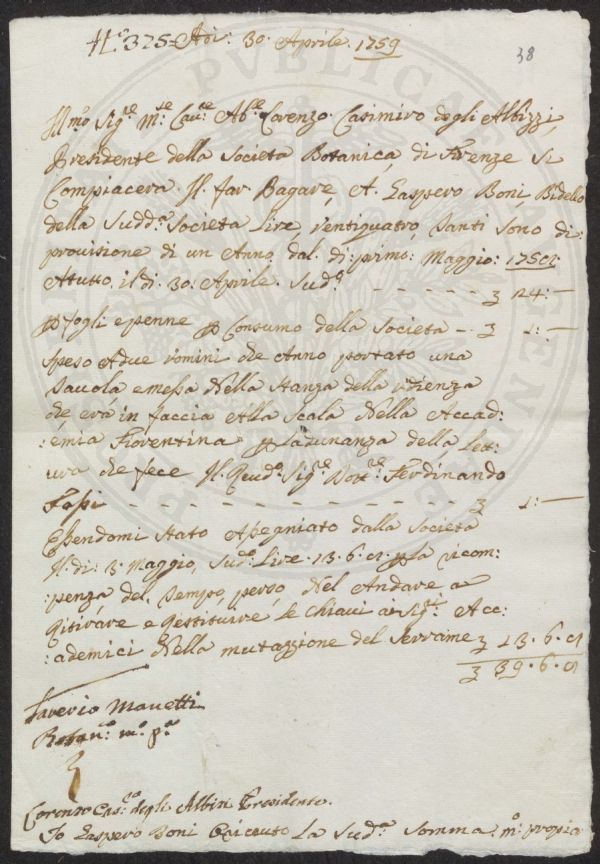 N.° 325 = Adi: 30. Aprile. 1759
38
Ill:mo Sig:re M:se Cau:re Ab:e Lorenzo Casimiro degli Albizzi,
Presidente della Societa Botanica, di Firenze Si
Compiacera. Il far Pagare, A. Gaspero Boni Bidello
della Sudd:a Societa Lire, Ventiquatro, Tanti Sono di:
provisione di un Anno, dal. di: primo: Maggio: 1758:
Atutto, il di. 30. Aprile. Sud:o - - - - - - - £ 24: —
p fogli e penne p Consumo della Societa - . £ 2: —
Speso Adue vomini che Anno portato una
Tavola e messa Nella Stanza della vdienza
che era in faccia Alla Scala Nella Accad:
:emia Fiorentina p Ladunanza della Let:
ura che fece Il. Reud:o Sig:re Dott:re Ferdinando
Fossi - - - - - - - - - - - - - £ -: —
Essendomi Stato Assegniato dalla Societa
Il di: 3. Maggio, Sud:o Lire. 13. 6. 8 p la ricom:
:penza, del. Tempo, perso, Nel Andare a
Ritirare e Restituire le Chiaui a Sig:ri Acc:
:ademici Nella mutazzione del Serrame £ 13. 6. 8
£ 39. 6. 8
Saverio Manetti
m:o p:a
Lorenzo Cas:ro degli Albizi Presidente.
Io Gaspero Boni Riceuto La Sud:a Somma. m:o propia